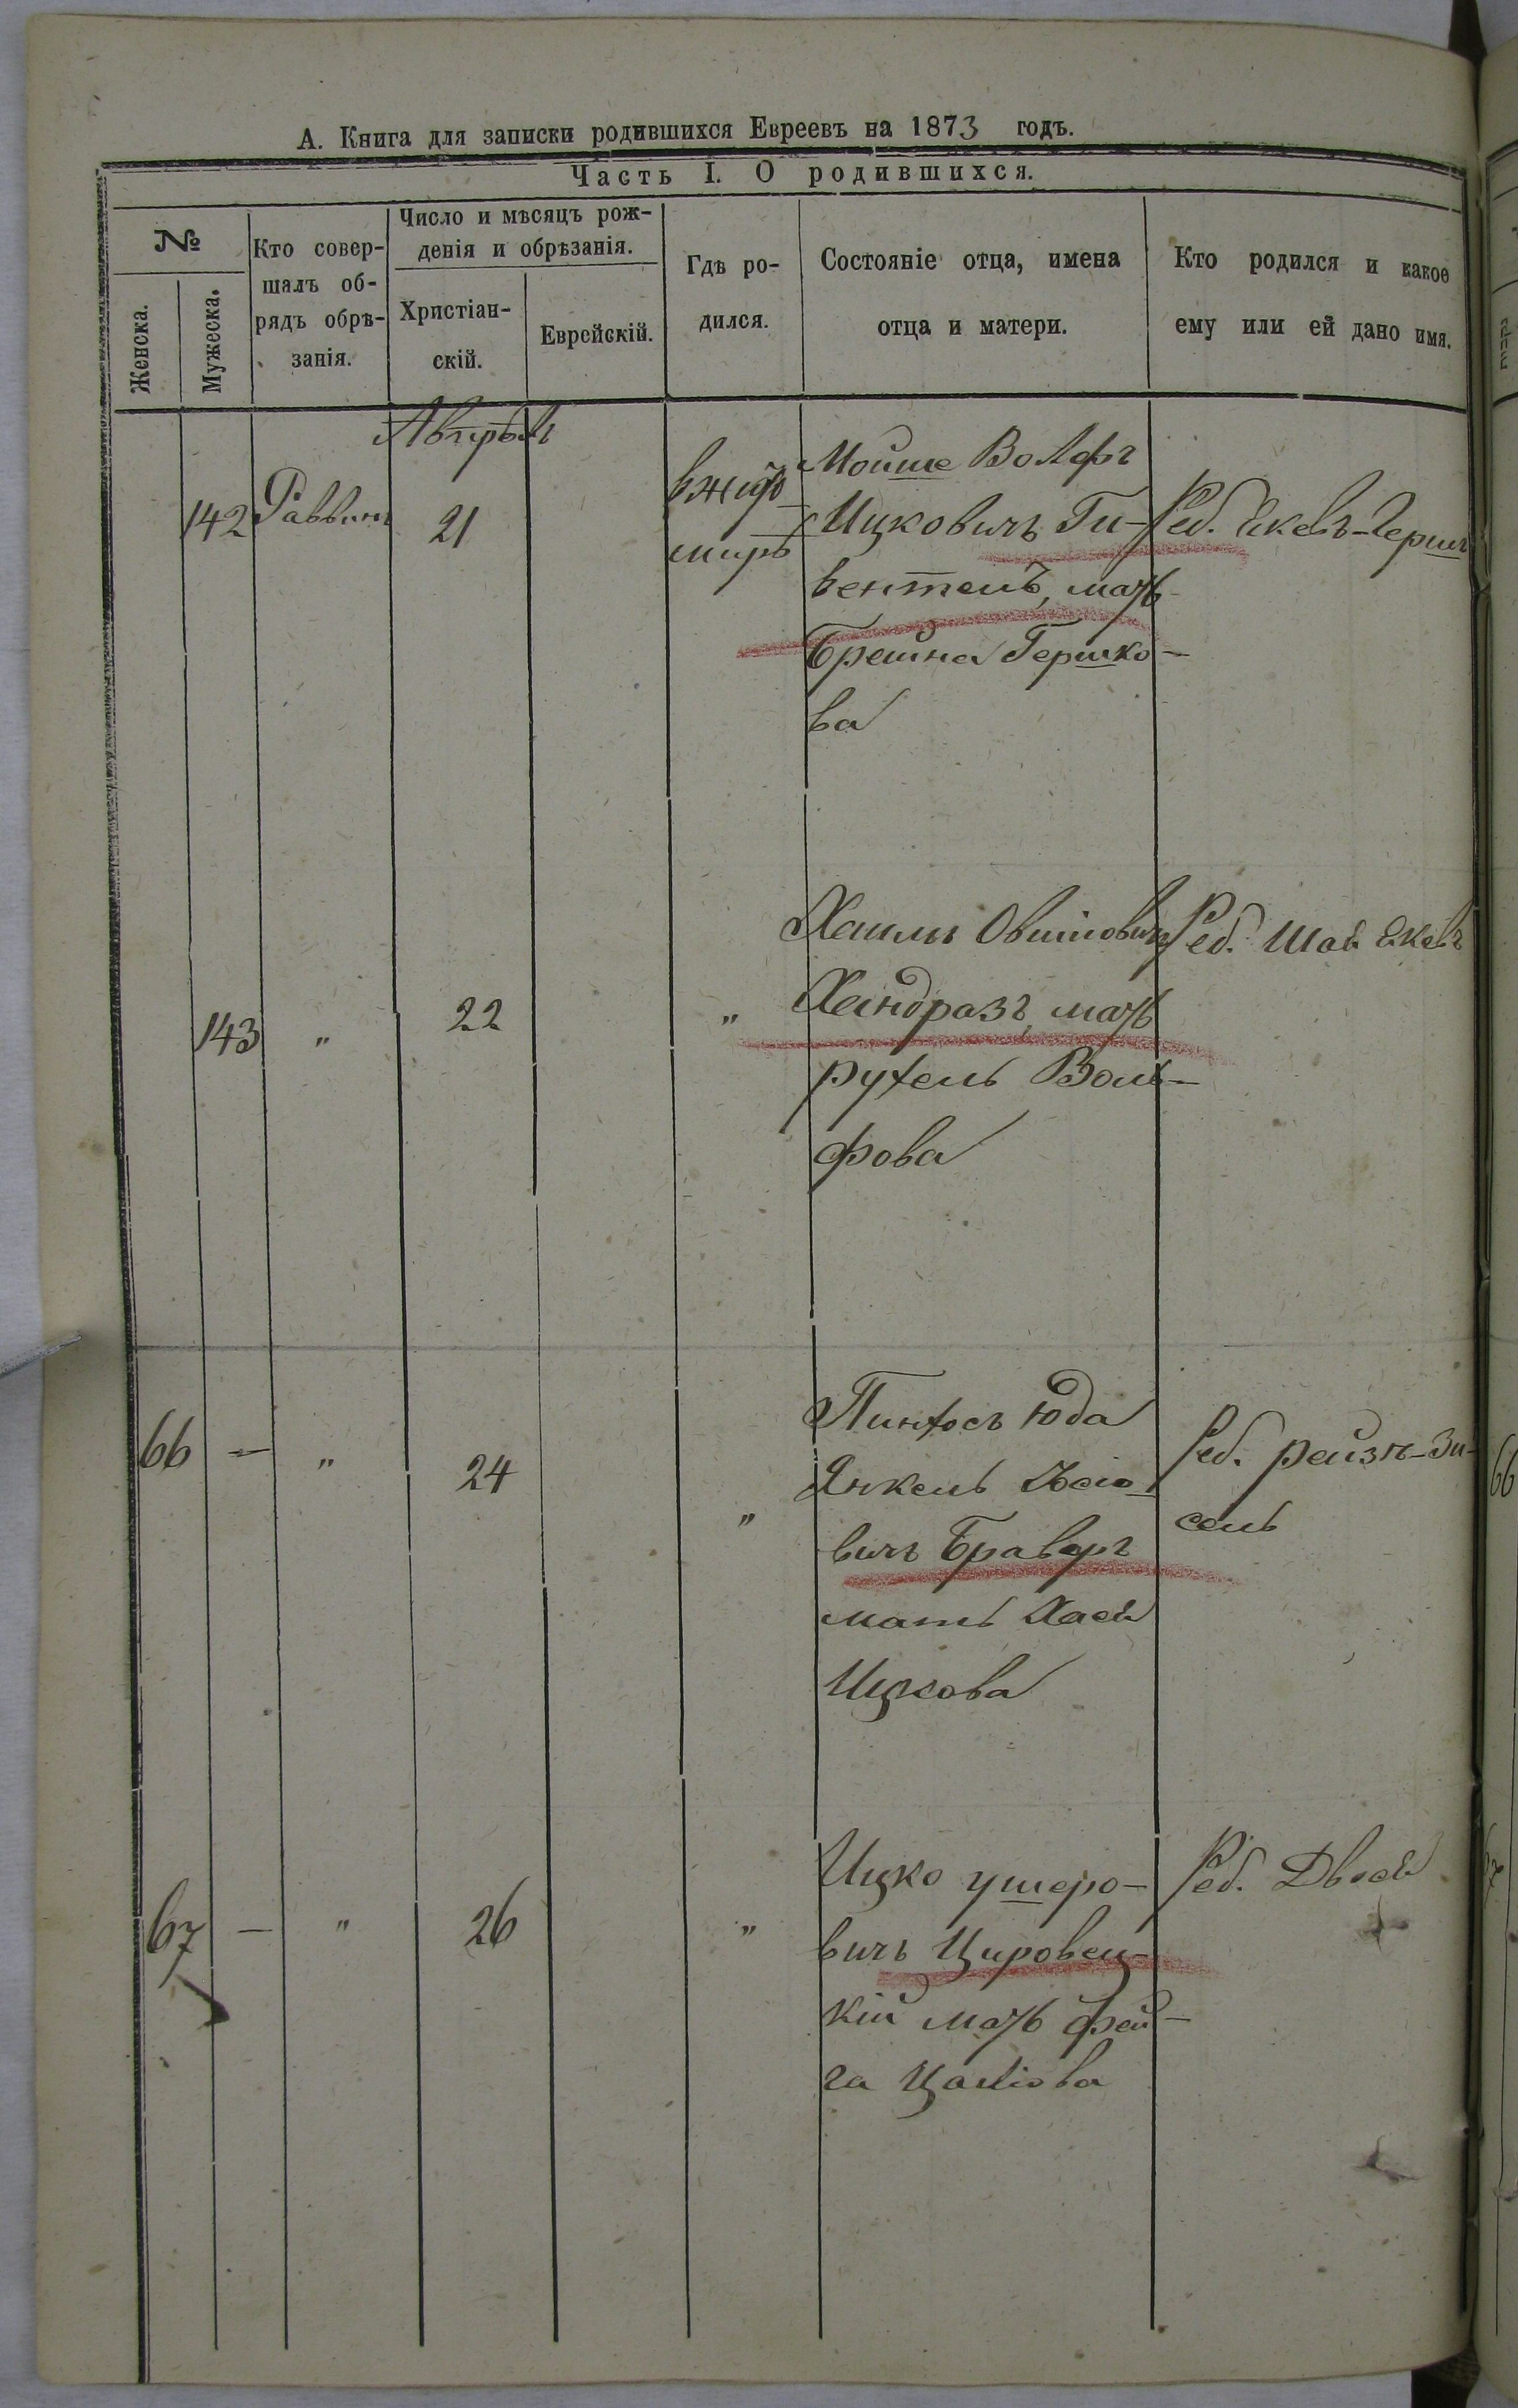 А. Книга для записки родившихся Евреевъ на 1873 годъ.
Часть I. О родившихся.
№
Женска.
Мужеска.
Кто совер-
шалъ об-
рядъ обрѣ-
занія.
Число и мѣсяцъ рож-
денія и обрѣзанія.
Христіан-
скій.
Еврейскій.
Гдѣ ро-
дился.
Состояніе отца, имена
отца и матери.
Кто родился и какое
ему или ей дано имя.
142
Раввинъ
21
вжито
миръ
Мойше Волфъ
Ицковичъ Ги-
вентель, мать
Брейна Гершко-
ва
Реб. Екевъ-Гершъ
143
"
22
"
Хендразъ, мать
рухель Воль-
фова
Реб. Шая Екевъ
66
-
"
24
"
Пинхосъ Юда
Янкель
вичъ Браверъ
мать Хася
Ицкова
Реб. рейзя-Зи-
сель
67
-
"
26
"
Ицко ушеро-
вичъ Цировец-
кій мать фей-
га
Реб. Двося
66